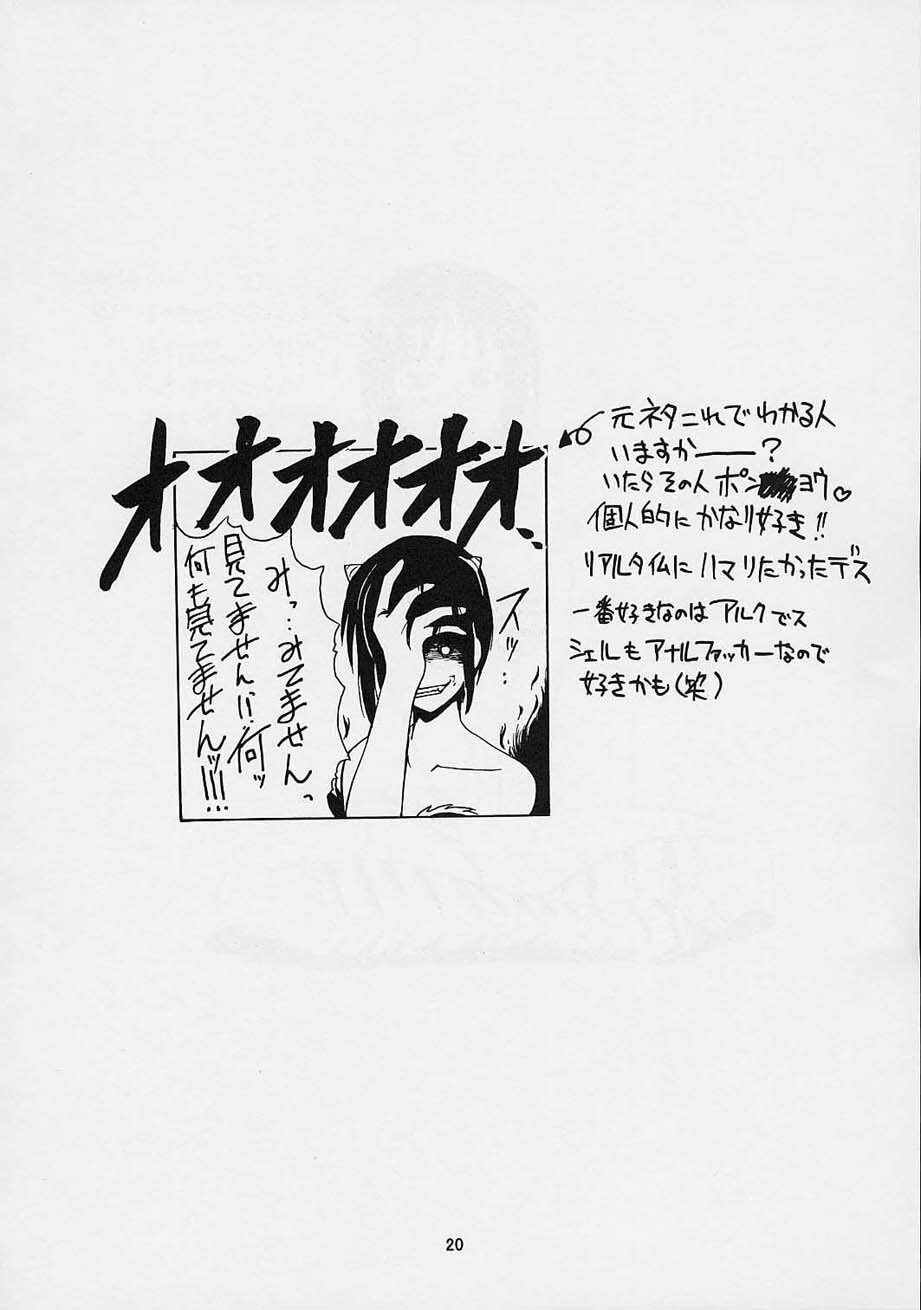 オオオオオオ
元ネタこれでわかる人
いますか――?
いたらその人ポン ヨウ♡
個人的にかなり好き!!
リアルタイムにハマりたかったデス
一番好きなのはアルクでス
シエルもアナルファッカーなので
好きかも(笑)
スッ…
みっ…みてませんっ
見てません!!何ッ
何も見てませんッ!!!…
20